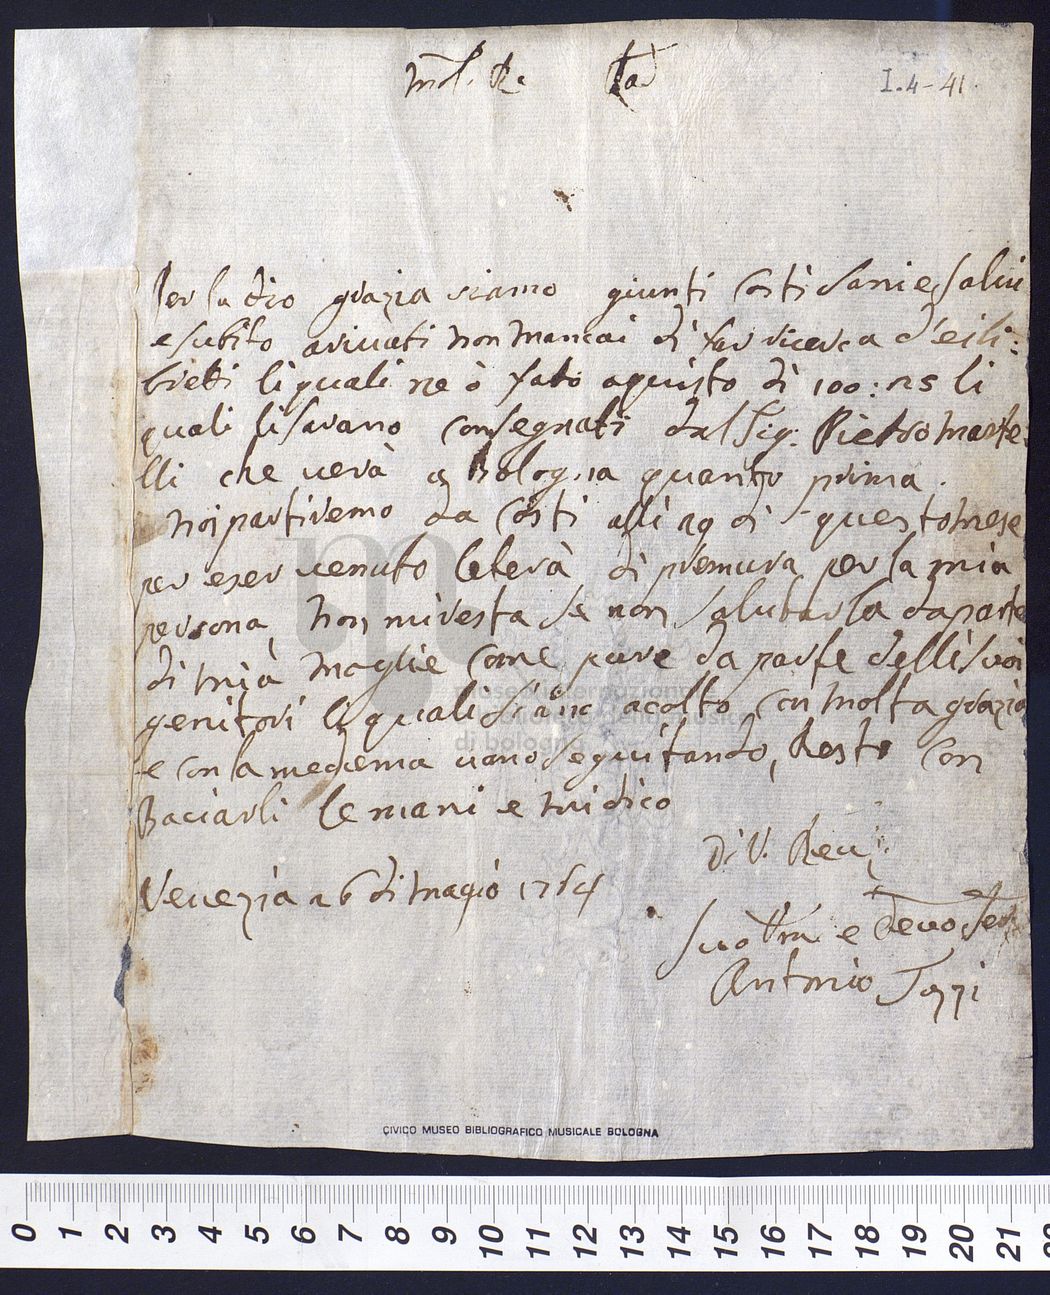 Mol. Re Pad
I.4-41
Per la dio grazia siamo giunti costi sani e salvi
e subito arivati non mancai di far ricerca d'ei li:
bretti li quali ne ò fato aquisto di 100: 25 li
quali li sarano consegnati dal Sig: Pietro Marte:
lli che verà a Bologna quanto prima.
Noi partiremo da costi alli 29 di questo mese
per eser venuto leterà di premura per la mia
persona, non mi resta se non salutarla da parte
di mia moglie come pure da parte delli suoi
genitori li quali acolto con molta grazia
e con la medema vano seguitando, Resto con
Baciarli le mani e mi dico
Di V. Rev:
Venezia 26 di magio 1764
Suo e Devo Ser
Antonio Tozzi
museo internazionale
e biblioteca della musica
di bologna
CIVICO MUSEO BIBLIOGRAFICO MUSICALE BOLOGNA
0 1 2 3 4 5 6 7 8 9 10 11 12 13 14 15 16 17 18 19 20 21